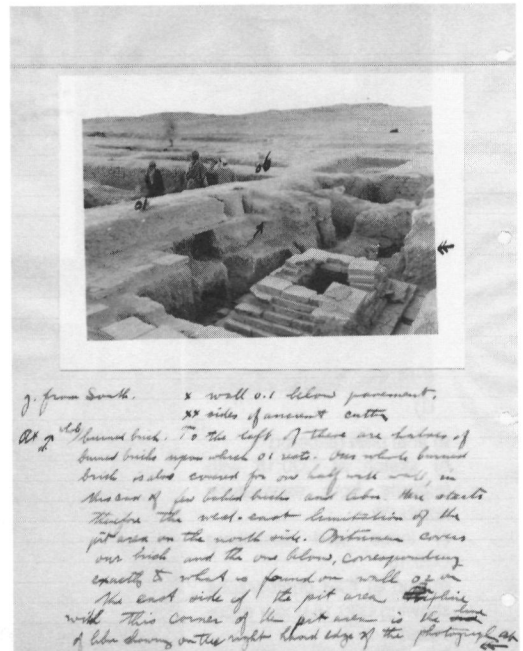 01
g. from South. x wall 0.1 below pavement.
xx sides of ancient cutts
At burned brick. To the left of these are halves of
burned bricks upon which 01 rests. One whole burned
brick is also covered for one half with wall, in
this case of few baked bricks and libn. Here starts
therefore the west-east limitation of the
pit area on the north side. Bitumen covers
one brick and the one below, corresponding
exactly to what is found on wall 02 on
the east side of the pit area
with this corner of the pit area is the line
of libn showing on the right hand edge of the photograph at